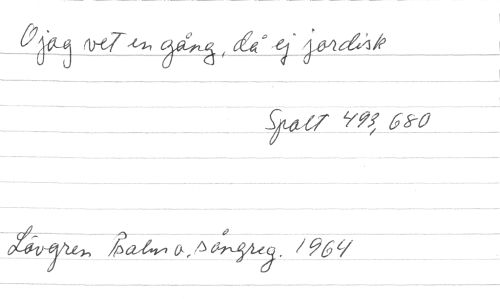 O jag vet en gång, då ej jordisk
Spalt 493, 680
Lövgren Psalm o. sångreg. 1964